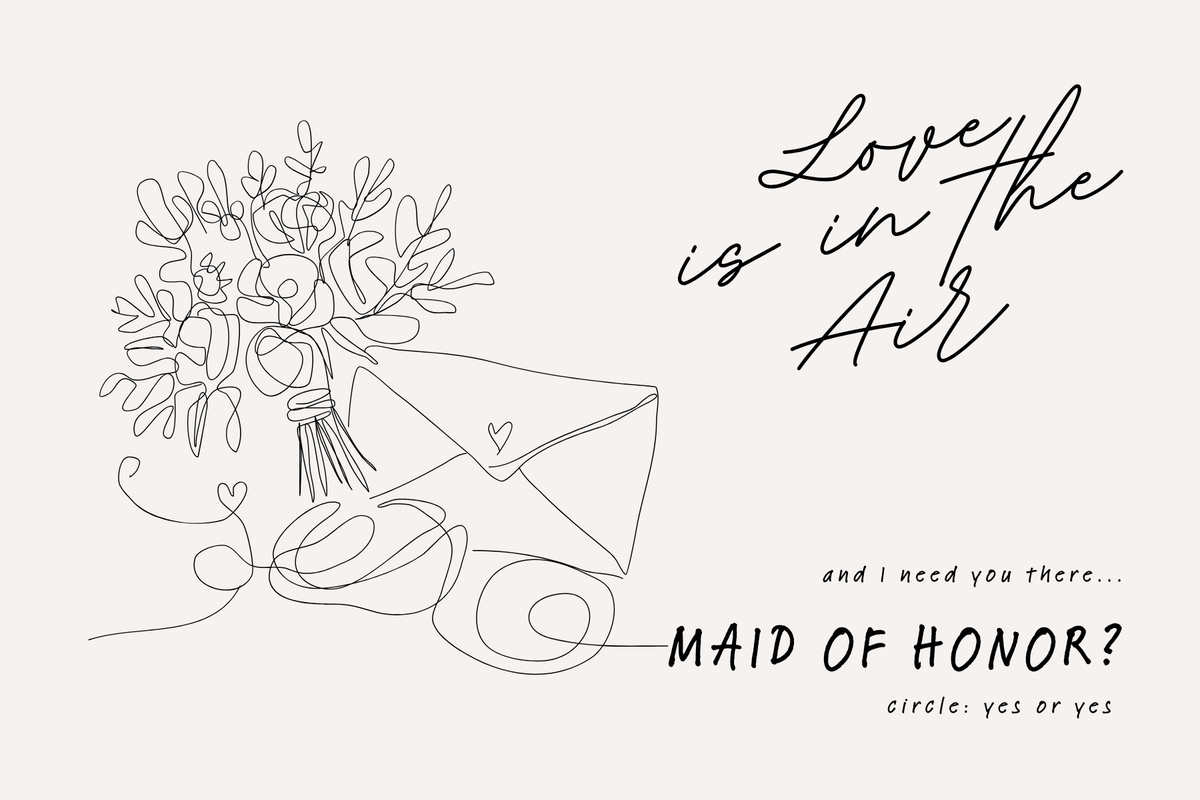 Love
is in the
Air
and I need you there...
MAID OF HONOR?
circle: yes or yes